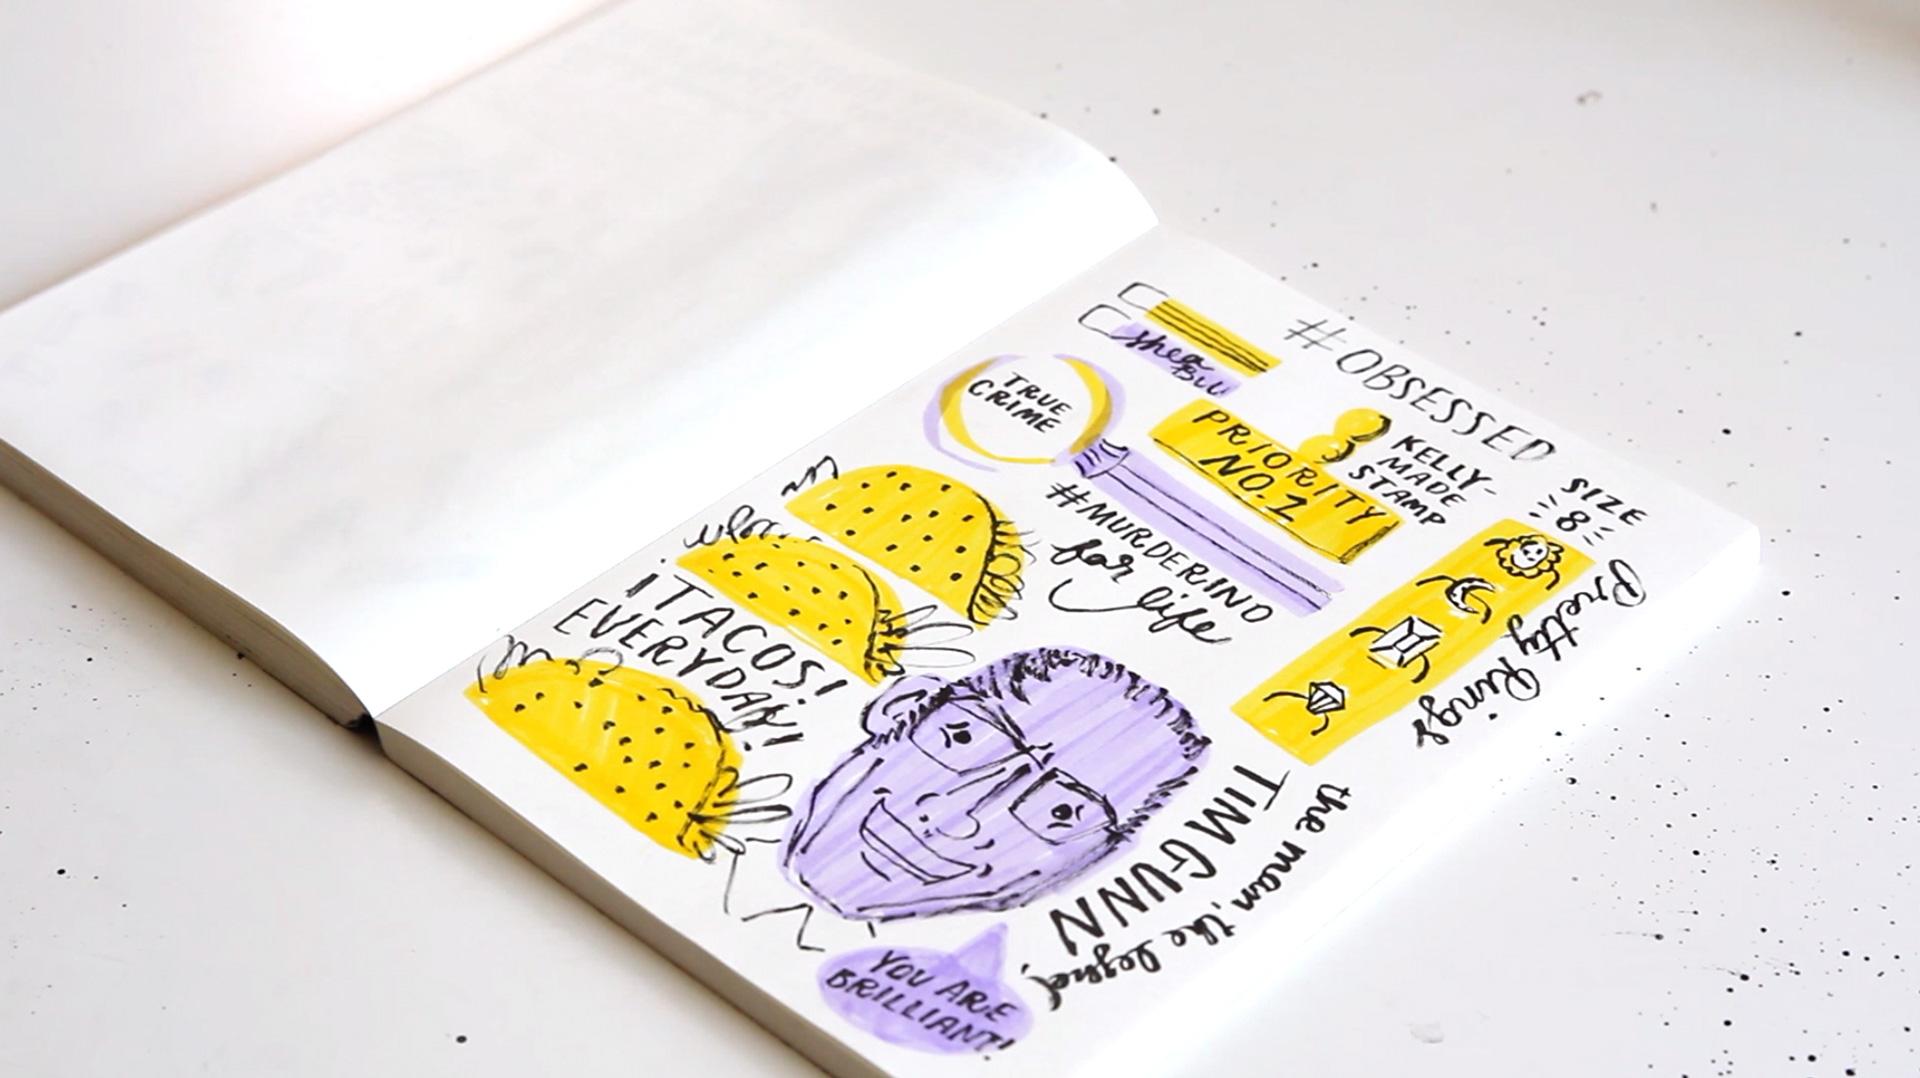 #OBSESSED
Shea
TRUE
CRIME
PRIORITY
NO.1
KELLY-
MADE
STAMP
SIZE
8
Pretty Rings
#MURDERINO
for life
¡TACOS!
EVERYDAY!
the man, the legend,
TIM GUNN
YOU ARE
BRILLIANT!